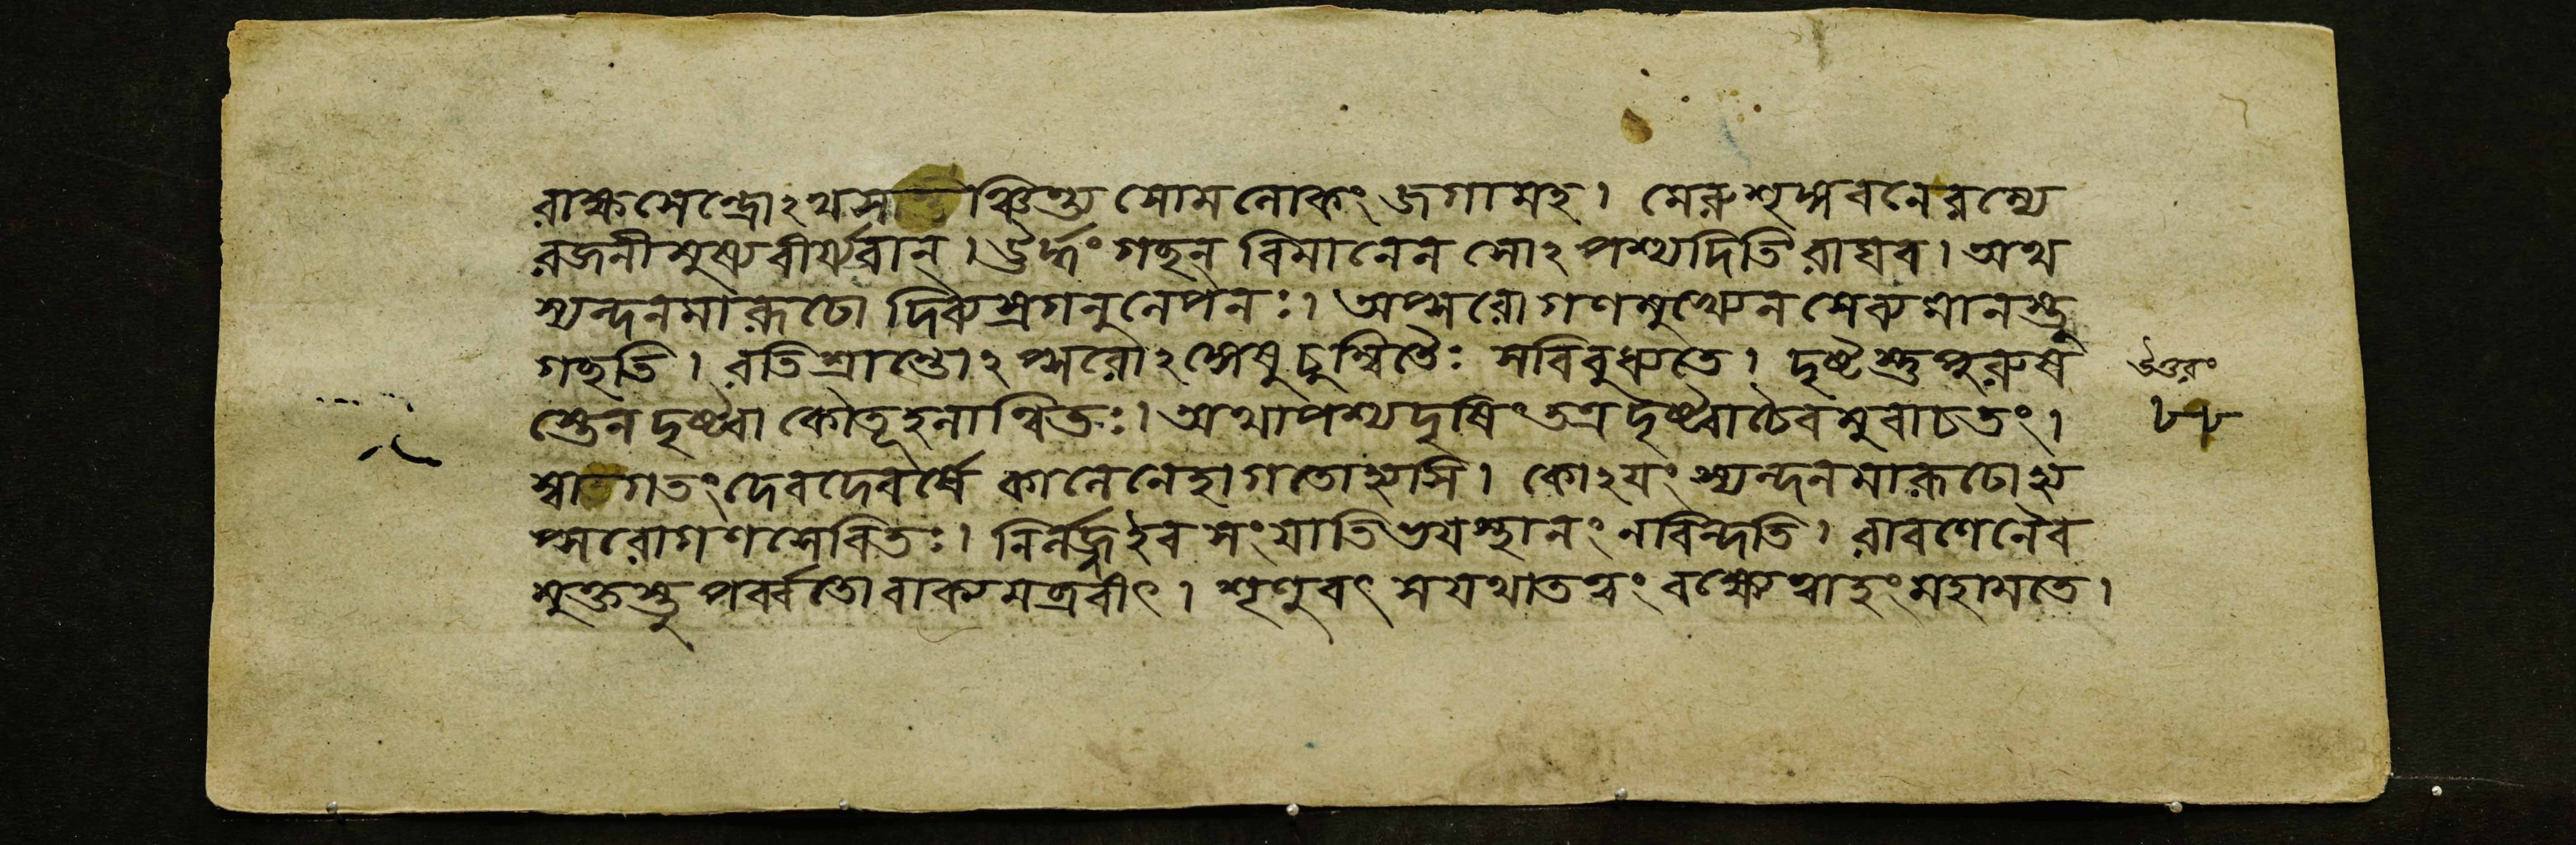 রাক্ষসেন্দ্রোঽথস ঞ্চিন্ত্য সোমলোকং জগামহ। মেরুশৃঙ্গবনেরম্যে
রজনীমুষ্যবীর্য্যবান্। ঊর্দ্ধং গচ্ছন্ বিমানেন সোঽপশ্যদিতি রাঘব। অথ
স্যন্দনমারূঢো দিব্যস্রগনুলেপনঃ। অপ্সরোগণমুখ্যেন সেব্যমানস্তু
গচ্ছতি। রতিশ্রান্তোঽপ্সরোঽঙ্গেষুচুম্বিতৈঃ সবিবুধ্যতে। দৃষ্টস্তুপুরুষ
স্তেনদৃষ্ট্বা কৌতূহলান্বিতঃ। অথাপশ্যদৃষিং তত্রদৃষ্ট্বাচৈবমুবাচতং।
স্বাগতংদেবদেবর্ষে কালেনেহাগতোহ্যসি। কোঽয়ং স্যন্দনমারূঢোহ্য
প্সরোগণসেবিতঃ। নির্লজ্জইব সংযাতিভয়স্থানং নবিন্দতি। রাবণেনৈব
মুক্তস্তু পর্ব্বতো বাক্যমব্রবীৎ। শৃণুবৎ সযথাতত্ত্বং বক্ষ্যেত্বাহং মহামতে।
উত্তরং
৮৮